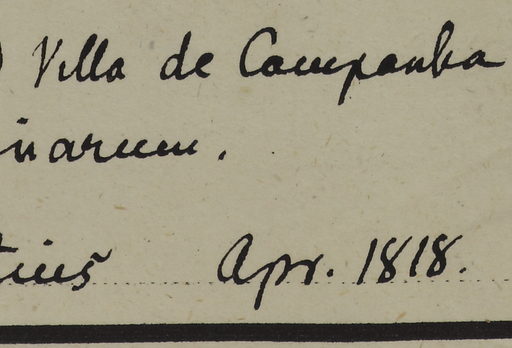 ) Villa de Campanha
inarum.
tius Apr. 1818.